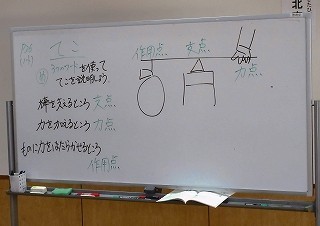 てこ
を使って
てこを説明しよう
棒を支えるところ 支点
力を加えるところ 力点
ものに力をはたらかせるところ
作用点
作用点 支点
力点
北